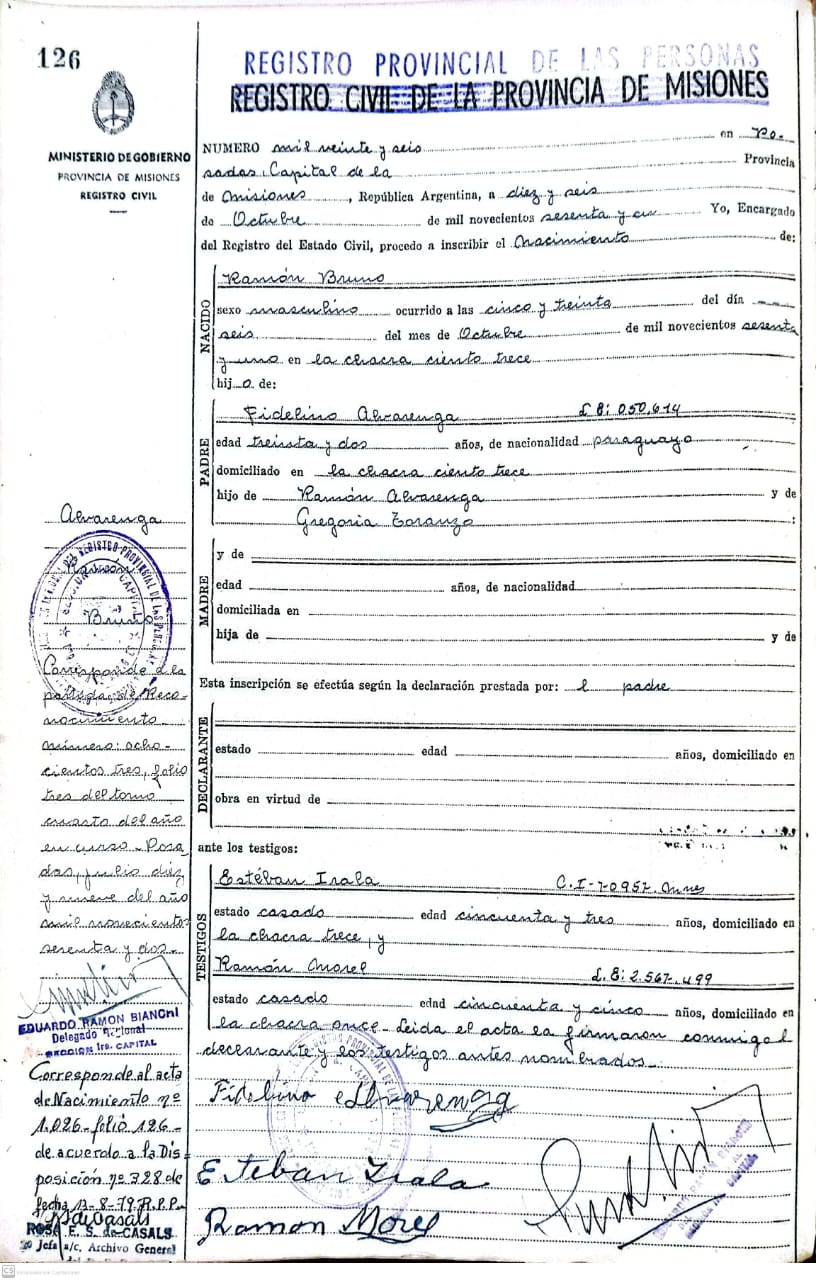 126
MINISTERIO DE GOBIERNO
PROVINCIA DE MISIONES
REGISTRO CIVIL
REGISTRO PROVINCIAL DE LAS PERSONAS
REGISTRO CIVIL DE LA PROVINCIA DE MISIONES
NUMERO mil veinte y seis en Po-
sadas, Capital de la Provincia
de Misiones, República Argentina, a diez y seis
de Octubre de mil novecientos sesenta y Yo, Encargado
del Registro del Estado Civil, procedo a inscribir el Nacimiento de:
NACIDO
Ramón Bruno
sexo masculino ocurrido a las cinco y treinta del día
seis del mes de Octubre de mil novecientos sesenta
y uno en la chacra ciento trece
hijo de:
PADRE
Fidelino Alvarenga
edad treinta y dos años, de nacionalidad paraguayo
domiciliado en la chacra ciento trece
hijo de Ramón Alvarenga y de
Gregoria Toranzo :
MADRE
y de
edad años, de nacionalidad
domiciliada en
hija de y de
Esta inscripción se efectúa según la declaración prestada por: el padre
DECLARANTE
estado edad años, domiciliado en
obra en virtud de
ante los testigos:
TESTIGOS
Estéban Irala
estado casado edad cincuenta y tres años, domiciliado en
la chacra trece, y
Ramón Morel L.E: 2.567.499
estado casado edad cincuenta y cinco años, domiciliado en
la chacra once - Leida el acta la firmaron conmigo el
declarante y los testigos antes nombrados.
Fidelino Alvarenga
Esteban Irala
Ramon Morel
Alvarenga
Ramón
Bruno
Corresponde a la
partida de Reco-
nocimiento
número: ocho-
cientos tres, folio
tres del tomo
cuarto del año
en curso - Posa
das, julio diez
y nueve del año
mil novecientos
setenta y dos -
EDUARDO RAMON BIANCHI
Delegado Regional
SECCION 1ra. CAPITAL
Corresponde al acta
de Nacimiento nº
1.026 - folio 126 -
de acuerdo a la Dis-
posición nº 328 de
fecha 13-8-79. R.P.P.
ROSA E. S. de CASALS
Jefa a/c. Archivo General
CS